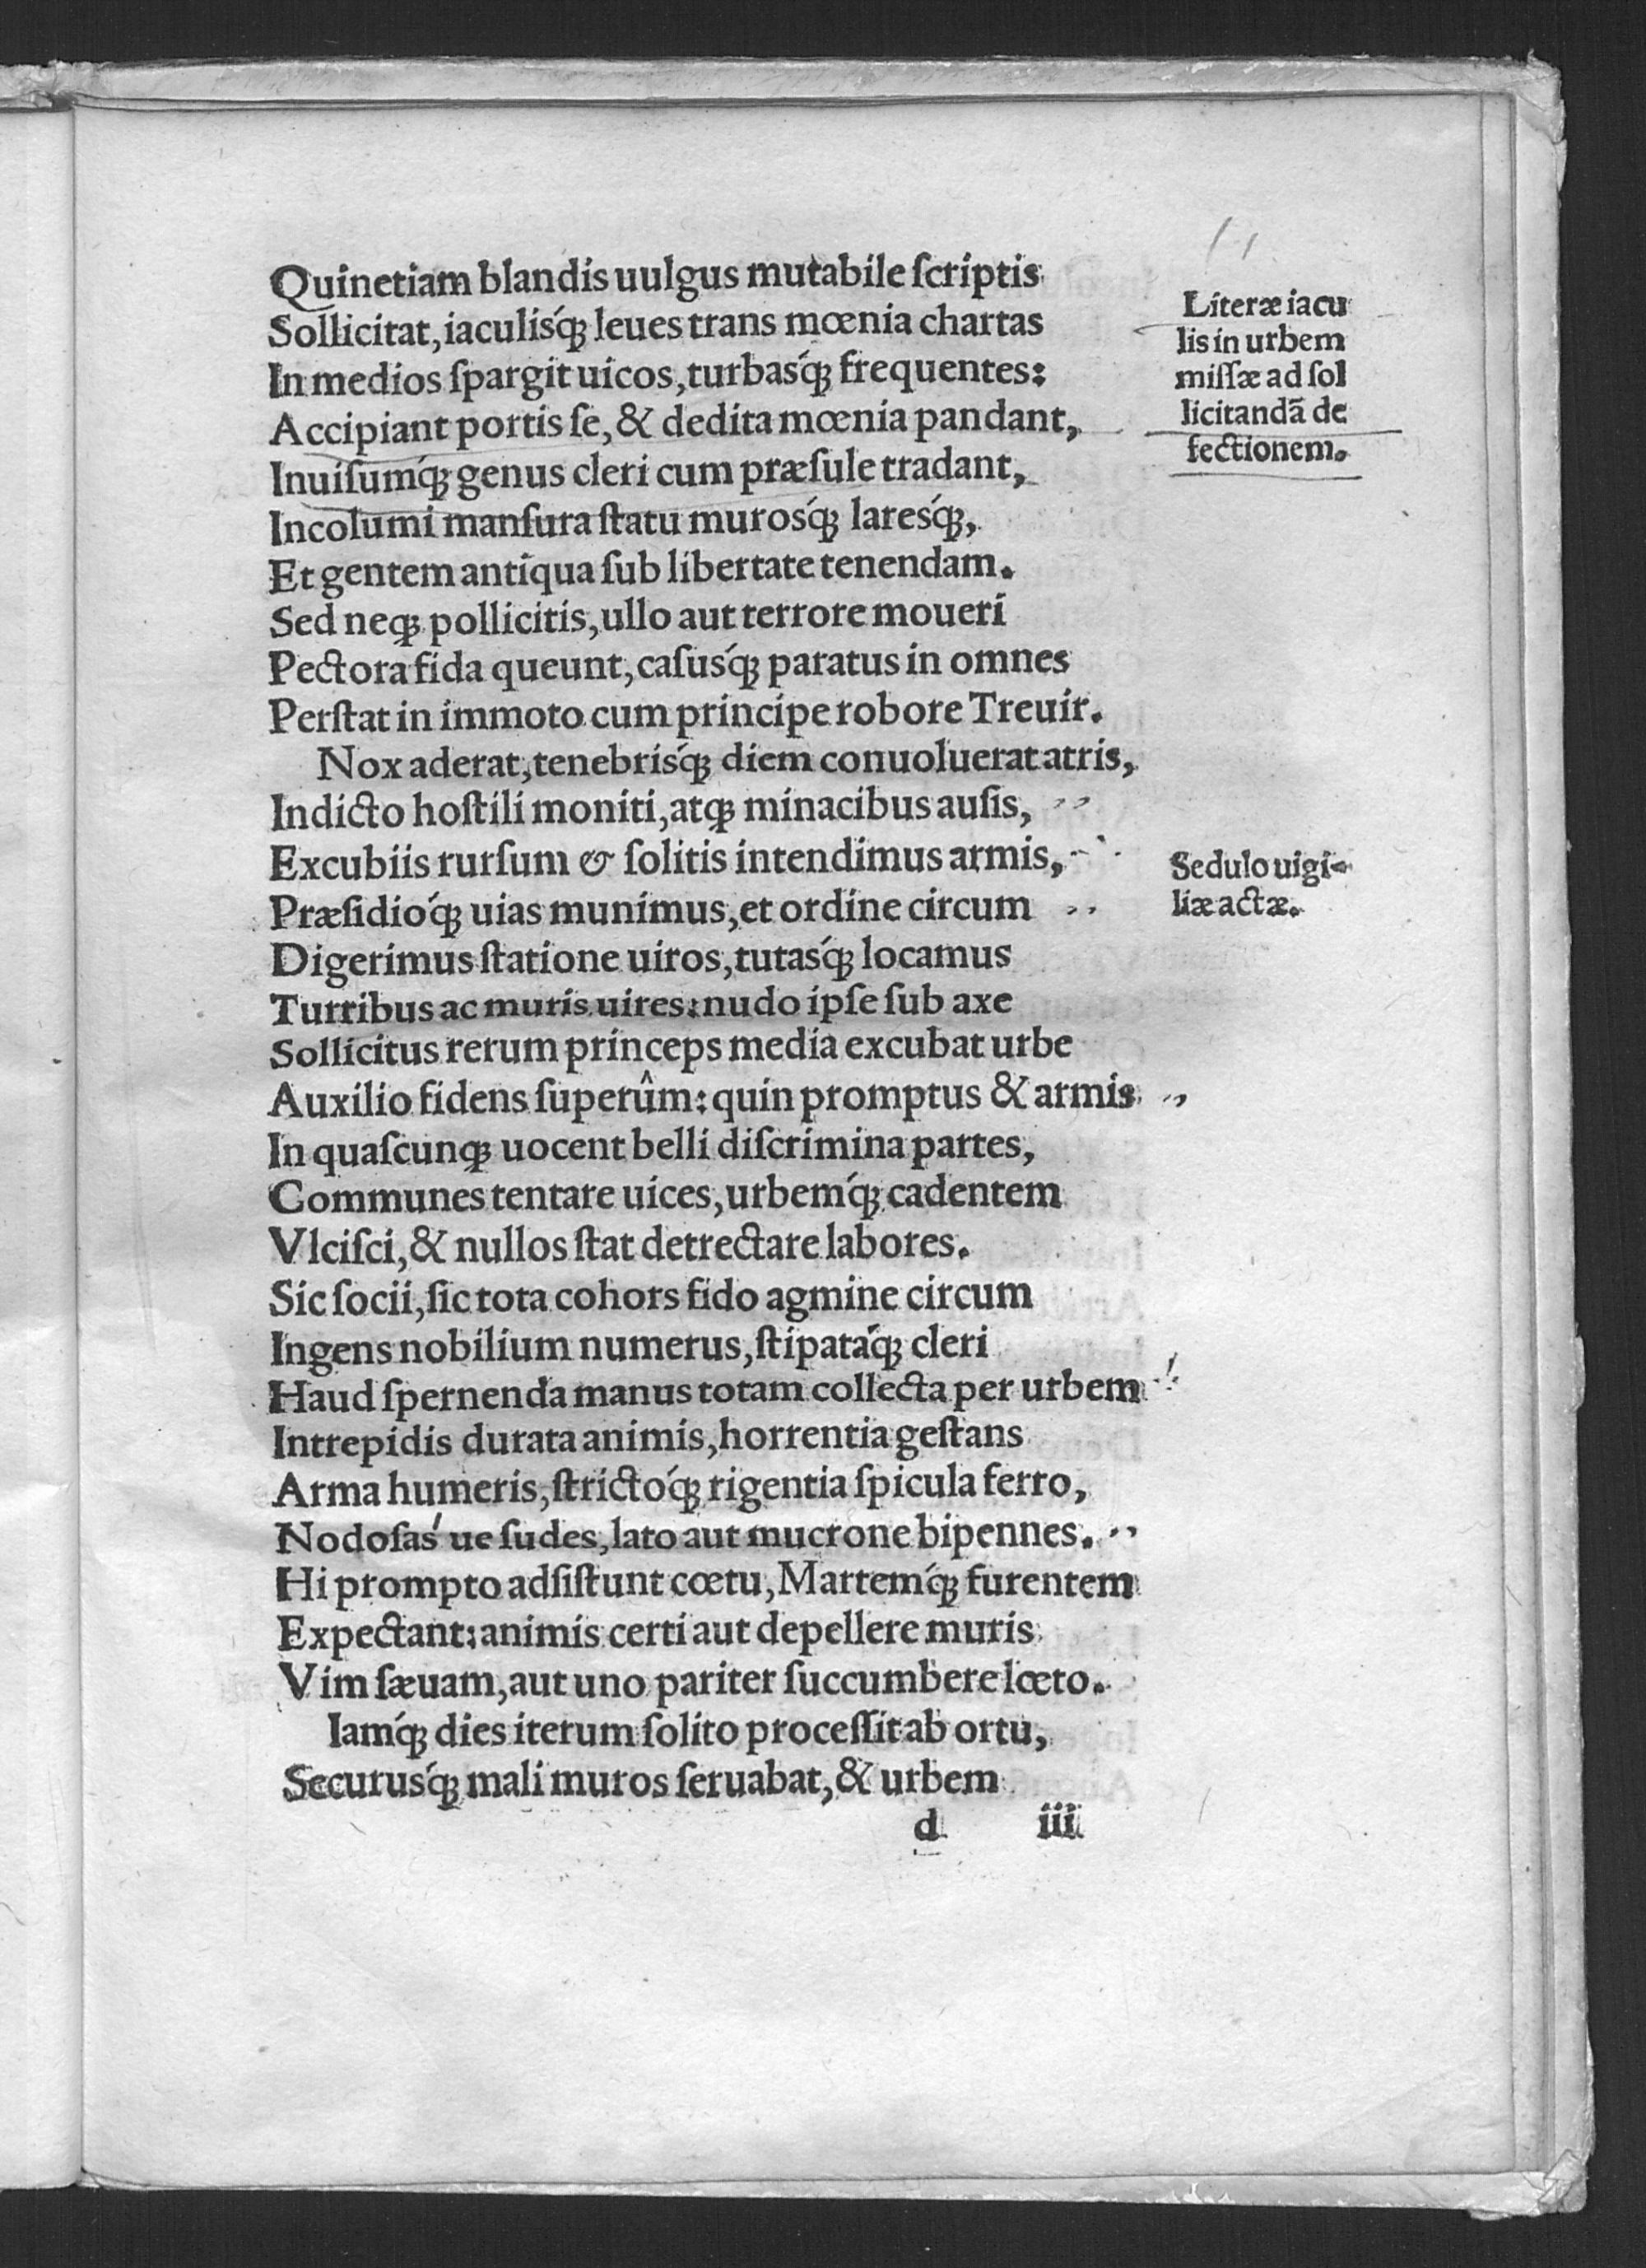 Quinetiam blandis uulgus mutabile ſcriptis
Sollicitat, iaculisq́ꝫ leues trans mœnia chartas
In medios ſpargit uicos, turbasq́ꝫ frequentes:
Accipiant portis ſe, & dedita mœnia pandant,
Inuiſumq́ꝫ genus cleri cum præſule tradant,
Incolumi manſura ſtatu murosq́ꝫ laresq́ꝫ,
Et gentem antiqua ſub libertate tenendam.
Sed neqꝫ pollicitis, ullo aut terrore moueri
Pectora fida queunt, caſusq́ꝫ paratus in omnes
Perſtat in immoto cum principe robore Treuir.
Nox aderat, tenebrisq́ꝫ diem conuoluerat atris,
Indicto hoſtili moniti, atqꝫ minacibus auſis,
Excubiis rurſum & ſolitis intendimus armis,
Præſidioq́ꝫ uias munimus, et ordine circum
Digerimus ſtatione uiros, tutasq́ꝫ locamus
Turribus ac muris uires: nudo ipſe ſub axe
Sollicitus rerum princeps media excubat urbe
Auxilio fidens ſuperûm: quin promptus & armis
In quaſcunqꝫ uocent belli diſcrimina partes,
Communes tentare uices, urbemq́ꝫ cadentem
Vlciſci, & nullos ſtat detrectare labores.
Sic ſocii, ſic tota cohors fido agmine circum
Ingens nobilium numerus, ſtipataq́ꝫ cleri
Haud ſpernenda manus totam collecta per urbem
Intrepidis durata animis, horrentia geſtans
Arma humeris, ſtrictoq́ꝫ rigentia ſpicula ferro,
Nodoſas' ue ſudes, lato aut mucrone bipennes.
Hi prompto adſiſtunt cœtu, Martemq́ꝫ furentem
Expectant: animis certi aut depellere muris
Vim ſæuam, aut uno pariter ſuccumbere lœto.
Iamq́ꝫ dies iterum ſolito proceſſit ab ortu,
Securusq́ꝫ mali muros ſeruabat, & urbem
d iii
Literæ iacu
lis in urbem
miſſæ ad ſol
licitandā de
fectionem.
Sedulo uigi-
liæ actæ.